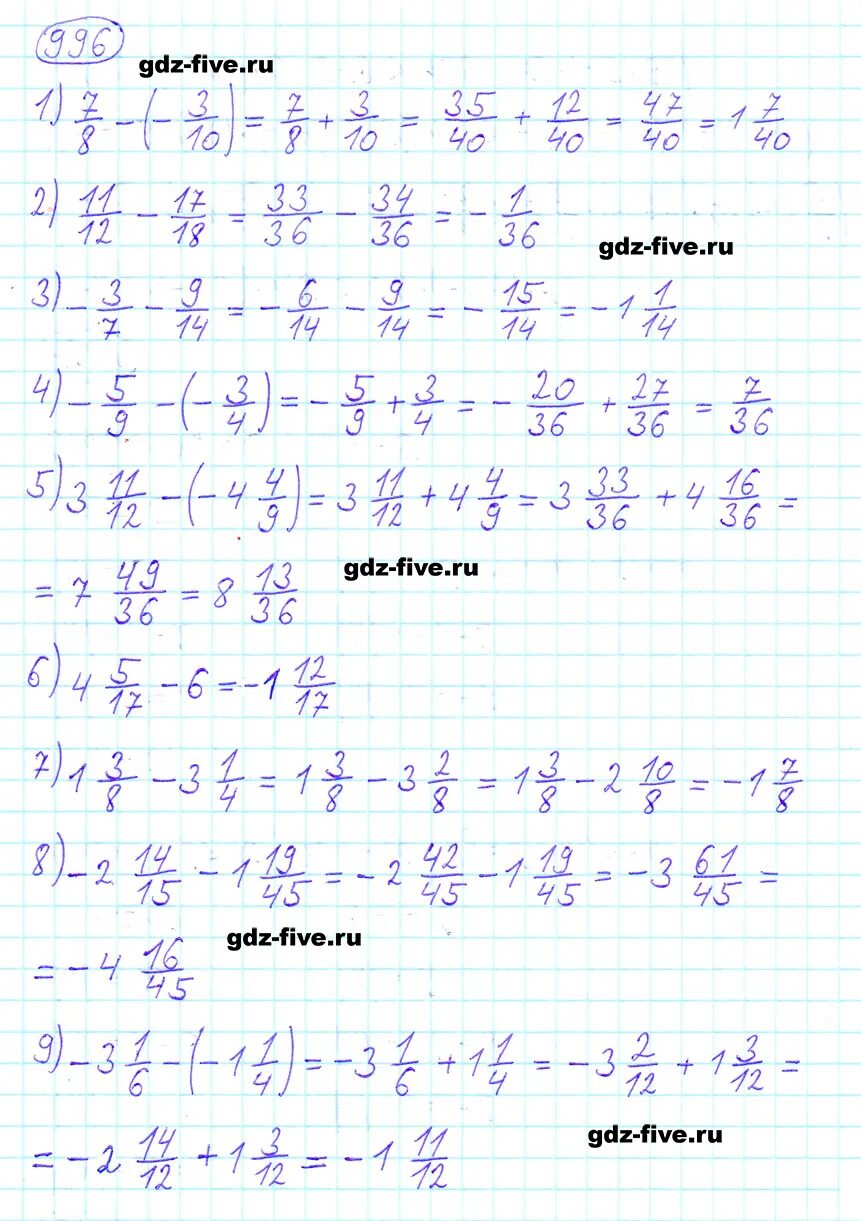 996
gdz-five.ru
1) 7/8 - (- 3/10) = 7/8 + 3/10 = 35/40 + 12/40 = 47/40 = 1 7/40
2) 11/12 - 17/18 = 33/36 - 34/36 = - 1/36
gdz-five.ru
3) - 3/7 - 9/14 = - 6/14 - 9/14 = - 15/14 = - 1 1/14
4) - 5/9 - (- 3/4) = - 5/9 + 3/4 = - 20/36 + 27/36 = 7/36
5) 3 11/12 - (- 4 4/9) = 3 11/12 + 4 4/9 = 3 33/36 + 4 16/36 =
= 7 49/36 = 8 13/36
gdz-five.ru
6) 4 5/17 - 6 = - 1 12/17
7) 1 3/8 - 3 1/4 = 1 3/8 - 3 2/8 = 1 3/8 - 2 10/8 = - 1 7/8
8) - 2 14/15 - 1 19/45 = - 2 42/45 - 1 19/45 = - 3 61/45 =
gdz-five.ru
= - 4 16/45
9) - 3 1/6 - (- 1 1/4) = - 3 1/6 + 1 1/4 = - 3 2/12 + 1 3/12 =
gdz-five.ru
= - 2 14/12 + 1 3/12 = - 1 11/12